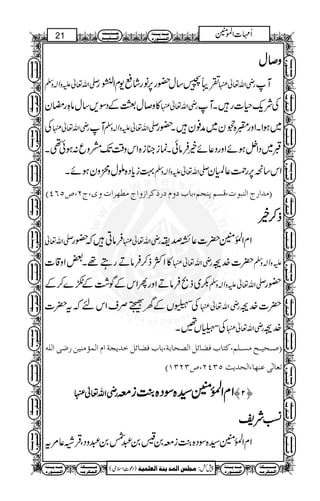 21 اُمہاتُ المؤمنین
وصال
آپ رضی اللہ تعالیٰ عنہا تقریباً پچیس سال حضور پرنور شافع یوم النشور صلی اللہ تعالیٰ علیہ والہ وسلم
کی شریک حیات رہیں۔ آپ رضی اللہ تعالیٰ عنہا کا وصال بعثت کے دسویں سال ماہِ رمضان
میں ہوا۔ اور مقبرہ حجون میں مدفون ہیں۔ حضور صلی اللہ تعالیٰ علیہ والہ وسلم آپ رضی اللہ تعالیٰ عنہا کی
قبر میں داخل ہوئے اور دعائے خیر فرمائی۔ نماز جنازہ اس وقت تک مشروع نہ ہوئی تھی۔
اس سانحہ پر رحمت عالمیان صلی اللہ تعالیٰ علیہ والہ وسلم بہت زیادہ ملول و محزون ہوئے۔
(مدارج النبوت،قسم پنجم،باب دوم درذکرازواج مطهرات وی،ج۲،ص٤٦٥)
ذکر خیر
ام المؤمنین حضرت عائشہ صدیقہ رضی اللہ تعالیٰ عنہا فرماتی ہیں کہ حضور صلی اللہ تعالیٰ
علیہ والہ وسلم حضرت خدیجہ رضی اللہ تعالیٰ عنہا کا اکثر ذکر فرماتے رہتے تھے۔ بعض اوقات
حضور صلی اللہ تعالیٰ علیہ والہ وسلم بکری ذبح فرماتے اور پھر اس کے گوشت کے ٹکڑے کر کے
حضرت خدیجہ رضی اللہ تعالیٰ عنہا کی سہیلیوں کے گھر بھیجتے صرف اس لئے کہ یہ حضرت
خدیجہ رضی اللہ تعالیٰ عنہا کی سہیلیاں تھیں۔
(صحیح مسلم،کتاب فضائل الصحابة،باب فضائل خدیجة ام المؤمنین رضی الله
تعالیٰ عنها،الحدیث ۲٤۳٥،ص۱۳۲۳)
﴿۲﴾ ام المؤمنین سیدہ سودہ بنت زمعہ رضی اللہ تعالیٰ عنہا
نسب شریف
ام المؤمنین سیدہ سودہ بنت زمعہ بن قیس بن عبد شمس بن عبدود، قرشیہ عامریہ
پیش کش: مجلس المدینۃ العلمیۃ (دعوتِ اسلامی)